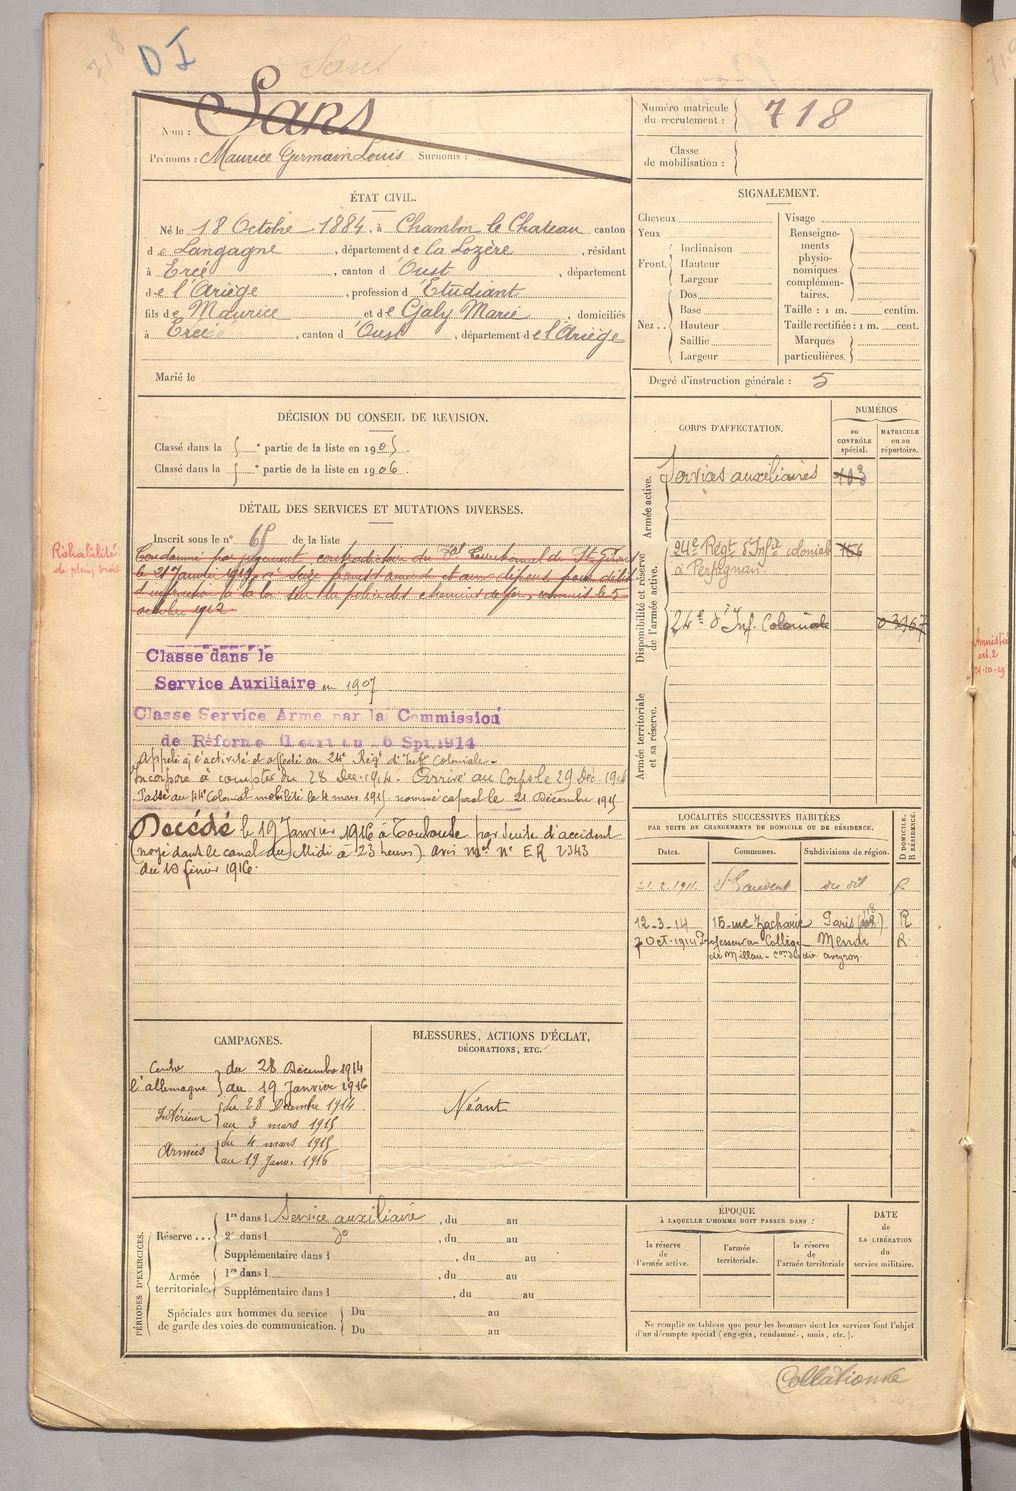 718
D I
Sans
Nom : Sans
Prénoms : Maurice Germain Louis Surnoms :
Numéro matricule du recrutement : 718
Classe de mobilisation :
ÉTAT CIVIL.
Né le 18 Octobre 1884, à Chambon le Chateau canton
de Langagne, département de la Lozère, résidant
à Ercé, canton d'Oust, département
de l'Ariège, profession d'Etudiant
fils de Maurice et de Galy Marie, domiciliés
à Ercé, canton d'Oust, département de l'Ariège
Marié le
SIGNALEMENT.
Cheveux
Yeux
Front. Inclinaison
Hauteur
Largeur
Nez.. Dos
Base
Hauteur
Saillie
Largeur
Visage
Renseignements physionomiques complémentaires.
Taille : 1 m. centim.
Taille rectifiée : 1 m. cent.
Marques particulières.
Degré d'instruction générale : 5
DÉCISION DU CONSEIL DE REVISION.
Classé dans la ° partie de la liste en 1905.
Classé dans la ° partie de la liste en 1906.
DÉTAIL DES SERVICES ET MUTATIONS DIVERSES.
Inscrit sous le n° 65 de la liste
Réhabilité
de plein droit
Condamné par jugement contradictoire du Tal Correctionnel de St
le 21 Janvier 1913, à seize francs d'amende et aux dépens pour délit
d'infraction à la loi sur la police des chemins de fer, commis le 5
octobre 1912
Classé dans le
Service Auxiliaire en 1907
Classé Service Armé par la Commission
de Réforme (Décret du 26 Spt. 1914
Appelé à l'activité et affecté au 24e Régt d'Infie Coloniale.
Incorporé à compter du 28 Dec. 1914. Arrivé au Corps le 29 Déc. 1914
Passé au 44e Colonial mobilisé le 4 mars 1915 nommé caporal le 21 Décembre 1915
Décédé le 19 Janvier 1916 à Toulouse par suite d'accident
(noyé dans le canal du Midi à 23 heures) avis mel n° ER 2343
du 10 février 1916.
CORPS D'AFFECTATION.
NUMÉROS
au CONTRÔLE spécial.
MATRICULE ou au répertoire.
Armée active.
Services auxiliaires 103
Disponibilité et réserve de l'armée active.
24e Régt d'Infie coloniale 156
à Perpignan.
24e d'Inf. Coloniale 03967
Armée territoriale et sa réserve.
Amnistié
art. 2
24-10-19
LOCALITÉS SUCCESSIVES HABITÉES
PAR SUITE DE CHANGEMENTS DE DOMICILE OU DE RÉSIDENCE.
Dates. Communes. Subdivisions de région. D. DOMICILE. R. RÉSIDENCE.
21.2.1911. St Gaudens du dit R
12-3-14 15 rue Zacharie Paris R
7 Oct. 1914 Professeur au Collège Mende R
de Millau - con du dit Aveyron
CAMPAGNES.
Contre l'allemagne du 28 Décembre 1914
au 19 Janvier 1916
Intérieur du 28 Décembre 1914
au 3 mars 1915
Armées du 4 mars 1915
au 19 Janv. 1916
BLESSURES, ACTIONS D'ÉCLAT,
DÉCORATIONS, ETC.
Néant
PÉRIODES D'EXERCICES.
Réserve... 1re dans l Service auxiliaire, du au
2e dans l do, du au
Supplémentaire dans l, du au
Armée territoriale. 1re dans l, du au
Supplémentaire dans l, du au
Spéciales aux hommes du service de garde des voies de communication. Du au
Du au
ÉPOQUE
À LAQUELLE L'HOMME DOIT PASSER DANS :
la réserve de l'armée active.
l'armée territoriale.
la réserve de l'armée territoriale
DATE de LA LIBÉRATION du service militaire.
Ne remplir ce tableau que pour les hommes dont les services font l'objet
d'un décompte spécial (engagés, condamnés, omis, etc.).
Collationné